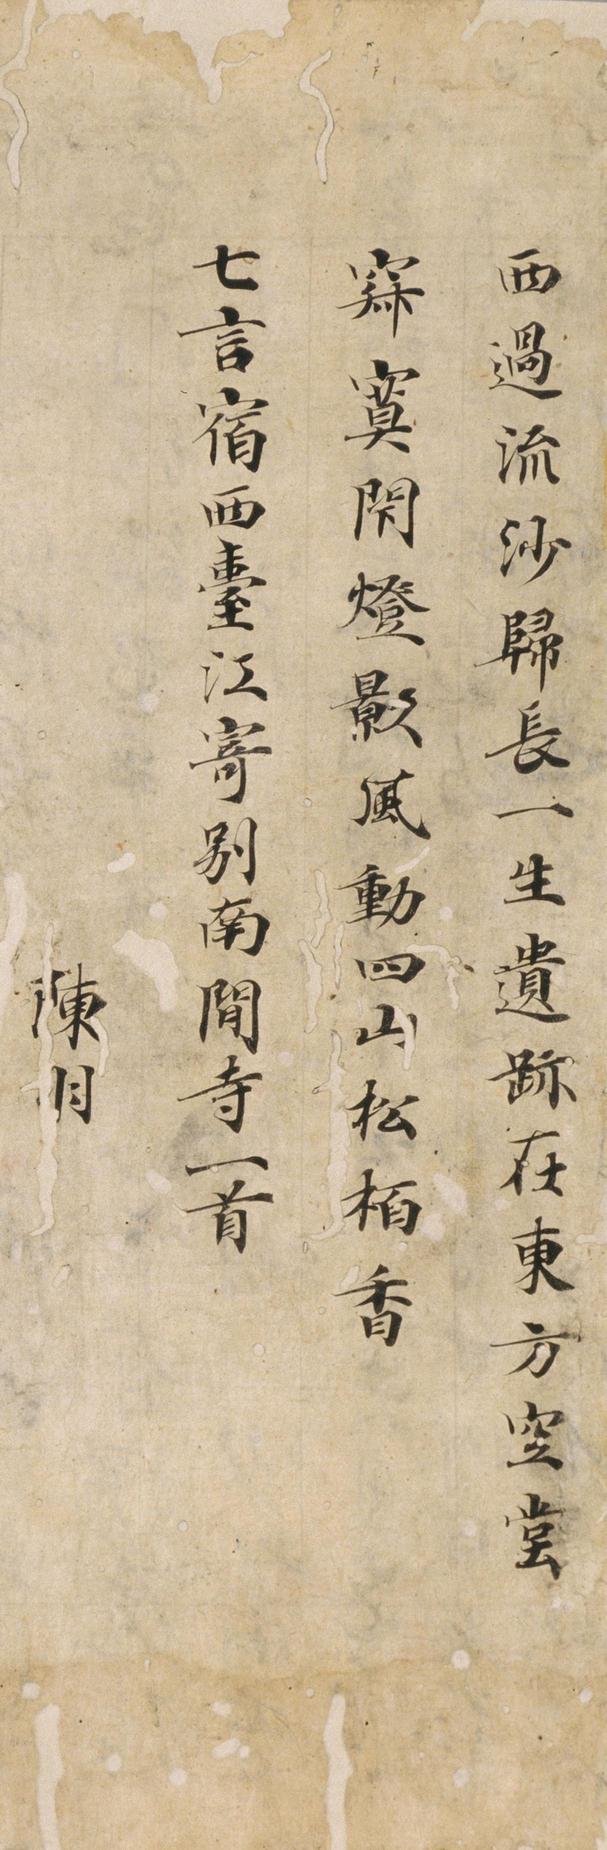 西過流沙歸長一生遺跡在東方空堂
寂寞閇燈影風動四山松栢香
七言宿西臺江寄別南閒寺一首
陳